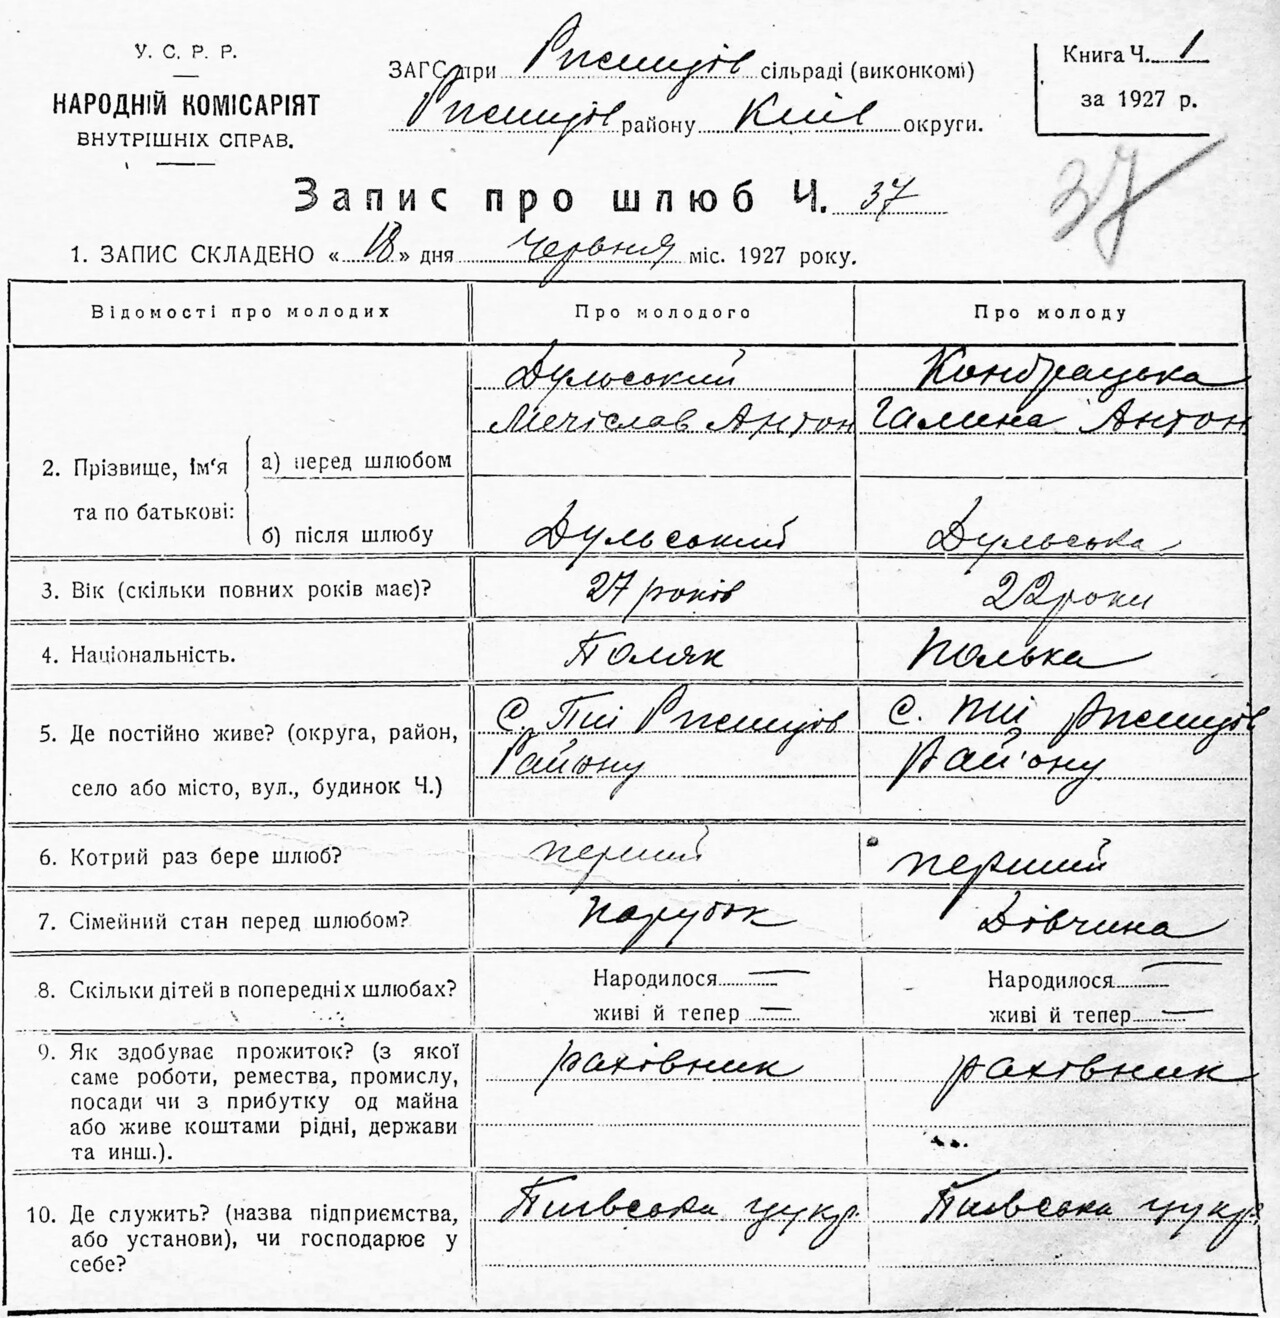 У. С. Р. Р.
НАРОДНІЙ КОМІСАРІЯТ
ВНУТРІШНІХ СПРАВ.
ЗАГС при Ржищів сільраді (виконкомі)
Ржищів району Київ округи.
Книга Ч. 1
за 1927 р.
37
Запис про шлюб Ч. 37
1. ЗАПИС СКЛАДЕНО «18» дня Червня міс. 1927 року.
Відомості про молодих
Про молодого
Про молоду
2. Прізвище, ім'я та по батькові:
а) перед шлюбом
Дульський
Мечіслав Антон
Кондрацька
Галина Антон
б) після шлюбу
Дульський
Дульська
3. Вік (скільки повних років має)?
27 років
22 роки
4. Національність.
Поляк
Полька
5. Де постійно живе? (округа, район,
село або місто, вул., будинок Ч.)
С. Пії Ржищів
Району
с. Пії Ржищів
Району
6. Котрий раз бере шлюб?
перший
перший
7. Сімейний стан перед шлюбом?
парубок
Дівчина
8. Скільки дітей в попередніх шлюбах?
Народилося —
живі й тепер —
Народилося —
живі й тепер —
9. Як здобуває прожиток? (з якої
саме роботи, ремества, промислу,
посади чи з прибутку од майна
або живе коштами рідні, держави
та инш.).
рахівник
рахівник
10. Де служить? (назва підприємства,
або установи), чи господарює у
себе?
Пиївська цукр.
Пиївська цукр.